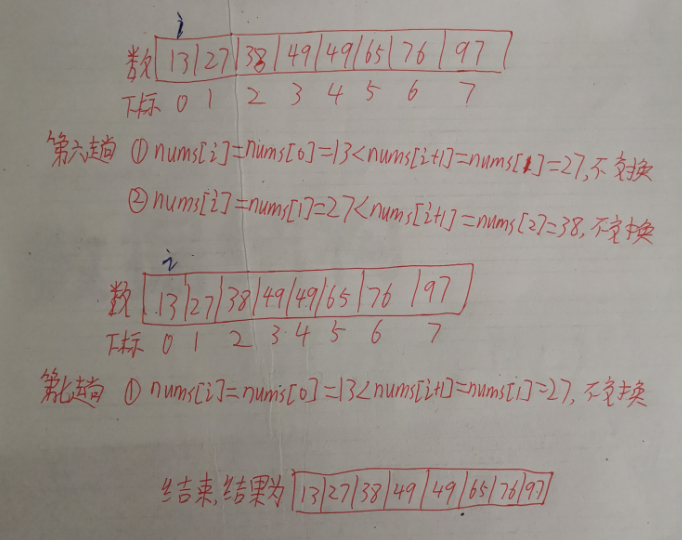 i
数 13 27 38 49 49 65 76 97
下标 0 1 2 3 4 5 6 7
第六趟 ① nums[i]=nums[0]=13<nums[i+1]=nums[1]=27,不交换
② nums[i]=nums[1]=27<nums[i+1]=nums[2]=38,不交换
i
数 13 27 38 49 49 65 76 97
下标 0 1 2 3 4 5 6 7
第七趟 ① nums[i]=nums[0]=13<nums[i+1]=nums[1]=27,不交换
结束,结果为 13 27 38 49 49 65 76 97